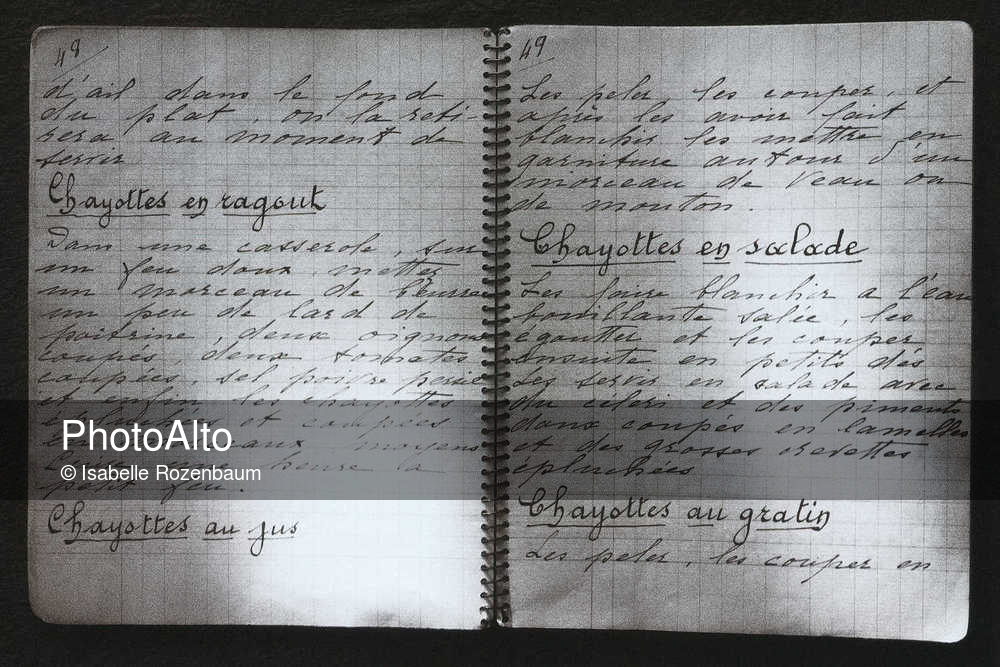 48
d'ail dans le fond
du plat, on la reti-
rera au moment de
servir
Chayottes en ragout
Dans une casserole, sur
un feu doux mettez
un morceau de beurre
un peu de lard de
poitrine, deux oignons
coupés deux tomates
coupées, sel poivre persil
et enfin les chayottes
et coupées
moyens
heure à
petit feu.
Chayottes au jus
49
Les peler, les couper, et
après les avoir fait
blanchir les mettre en
garniture autour d'un
morceau de veau ou
de mouton.
Chayottes en salade
Les faire blanchir a l'eau
bouillante salée, les
égoutter et les couper
ensuite en petits dés
Les servir en salade avec
du céleri et des piments
doux coupés en lamelles
et des grosses crevettes
épluchées
Chayottes au gratin
Les peler, les couper en
PhotoAlto
© Isabelle Rozenbaum